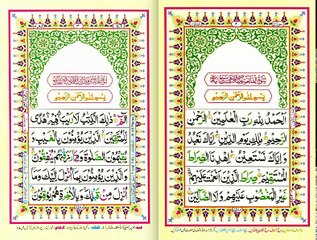 بِسْمِ اللّٰهِ الرَّحْمٰنِ الرَّحِيْمِ
اَلْحَمْدُ لِلّٰهِ رَبِّ الْعٰلَمِيْنَ الرَّحْمٰنِ
الرَّحِيْمِ مٰلِكِ يَوْمِ الدِّيْنِ اِيَّاكَ نَعْبُدُ
وَ اِيَّاكَ نَسْتَعِيْنُ اِهْدِنَا الصِّرَاطَ
الْمُسْتَقِيْمَ صِرَاطَ الَّذِيْنَ اَنْعَمْتَ عَلَيْهِمْ
غَيْرِ الْمَغْضُوْبِ عَلَيْهِمْ وَلَا الضَّآلِّيْنَ
بِسْمِ اللّٰهِ الرَّحْمٰنِ الرَّحِيْمِ
الٓمّٓ ذٰلِكَ الْكِتٰبُ لَا رَيْبَ فِيْهِ هُدًى
لِّلْمُتَّقِيْنَ الَّذِيْنَ يُؤْمِنُوْنَ بِالْغَيْبِ وَ
يُقِيْمُوْنَ الصَّلٰوةَ وَمِمَّا رَزَقْنٰهُمْ يُنْفِقُوْنَ
وَالَّذِيْنَ يُؤْمِنُوْنَ بِمَآ اُنْزِلَ اِلَيْكَ وَمَآ
اُنْزِلَ مِنْ قَبْلِكَ وَبِالْاٰخِرَةِ هُمْ يُوْقِنُوْنَ